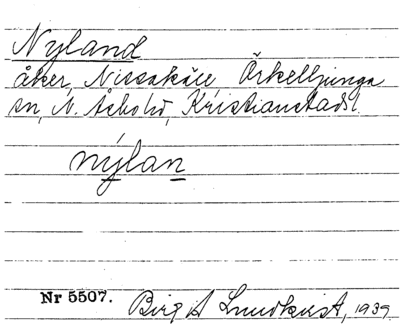 Nyland
åker, Nissakåre, Örkelljunga
sn, N. Åsbohd, Kristianstads l.
nýlan
Nr 5507. Birg A Lundkvist, 1939